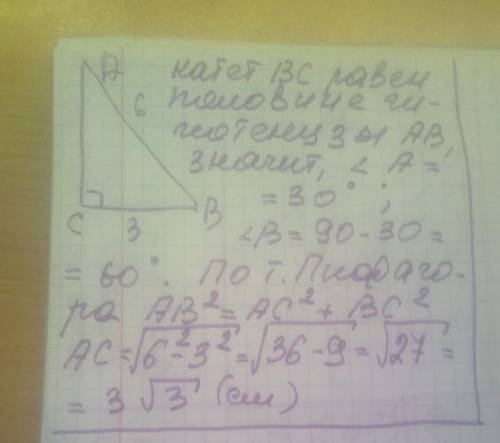 A
6
C
3
B
катет BC равен
половине ги-
потенузы AB,
значит, ∠A =
= 30°;
∠B = 90 - 30 =
= 60°. По т. Пифаго-
ра AB² = AC² + BC²
AC = √6² - 3² = √36 - 9 = √27 =
= 3√3 (см)